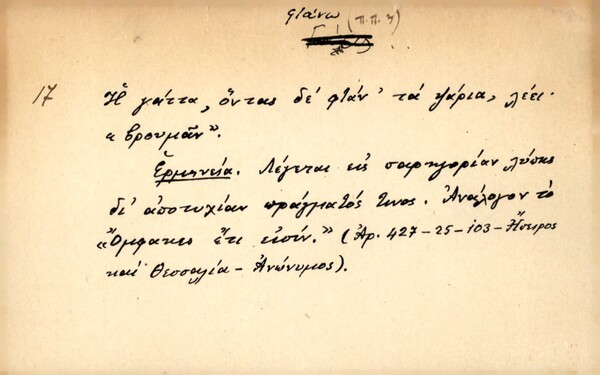 φτάνω (π.π. 4)
17 Ἡ γάττα, ὄντας δέ φτάν' τά ψάρια, λέει·
"βρουμᾶν".
Ἑρμηνεία. Λέγεται εἰς παρηγορίαν λύπης
δι' ἀποτυχίαν πράγματός τινος. Ἀνάλογον τὸ
"Ὄμφακες ἔτι εἰσίν." (Ἀρ. 427-25-103-Ἤπειρος
καί Θεσσαλία-Ἀνώνυμος).